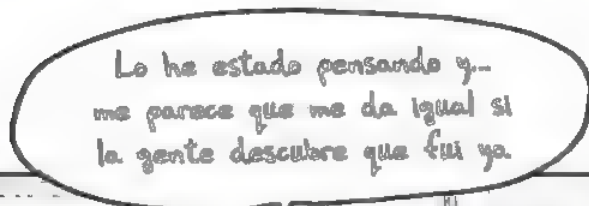 Lo he estado pensando y...
me parece que me da igual si
la gente descubre que fui yo